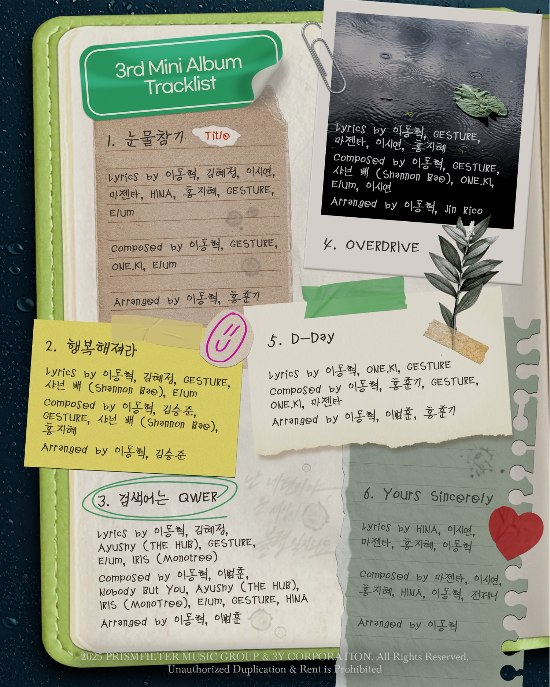 3rd Mini Album
Tracklist
1. 눈물참기 Title
Lyrics by 이동혁, 김혜정, 이시연,
마젠타, HINA, 홍지혜, GESTURE,
Elum
Composed by 이동혁, GESTURE,
ONE.KI, Elum
Arranged by 이동혁, 홍훈기
2. 행복해져라
Lyrics by 이동혁, 김혜정, GESTURE,
샤넌 배 (Shannon Bae), Elum
Composed by 이동혁, 김승준,
GESTURE, 샤넌 배 (Shannon Bae),
홍지혜
Arranged by 이동혁, 김승준
3. 검색어는 QWER
Lyrics by 이동혁, 김혜정,
Ayushy (THE HUB), GESTURE,
Elum, IRIS (MonoTree)
Composed by 이동혁, 이범훈,
Nobody But You, Ayushy (THE HUB),
IRIS (MonoTree), Elum, GESTURE, HINA
Arranged by 이동혁, 이범훈
Lyrics by 이동혁, GESTURE,
마젠타, 이시연, 홍지혜
Composed by 이동혁, GESTURE,
샤넌 배 (Shannon Bae), ONE.KI,
Elum, 이시연
Arranged by 이동혁, Jin Rico
4. OVERDRIVE
5. D-Day
Lyrics by 이동혁, ONE.KI, GESTURE
Composed by 이동혁, 홍훈기, GESTURE,
ONE.KI, 마젠타
Arranged by 이동혁, 이범훈, 홍훈기
6. Yours Sincerely
Lyrics by HINA, 이시연,
마젠타, 홍지혜, 이동혁
Composed by 마젠타, 이시연,
홍지혜, HINA, 이동혁, 전저니
Arranged by 이동혁
2025 PRISMFILTER MUSIC GROUP & 3Y CORPORATION. All Rights Reserved.
Unauthorized Duplication & Rent is Prohibited